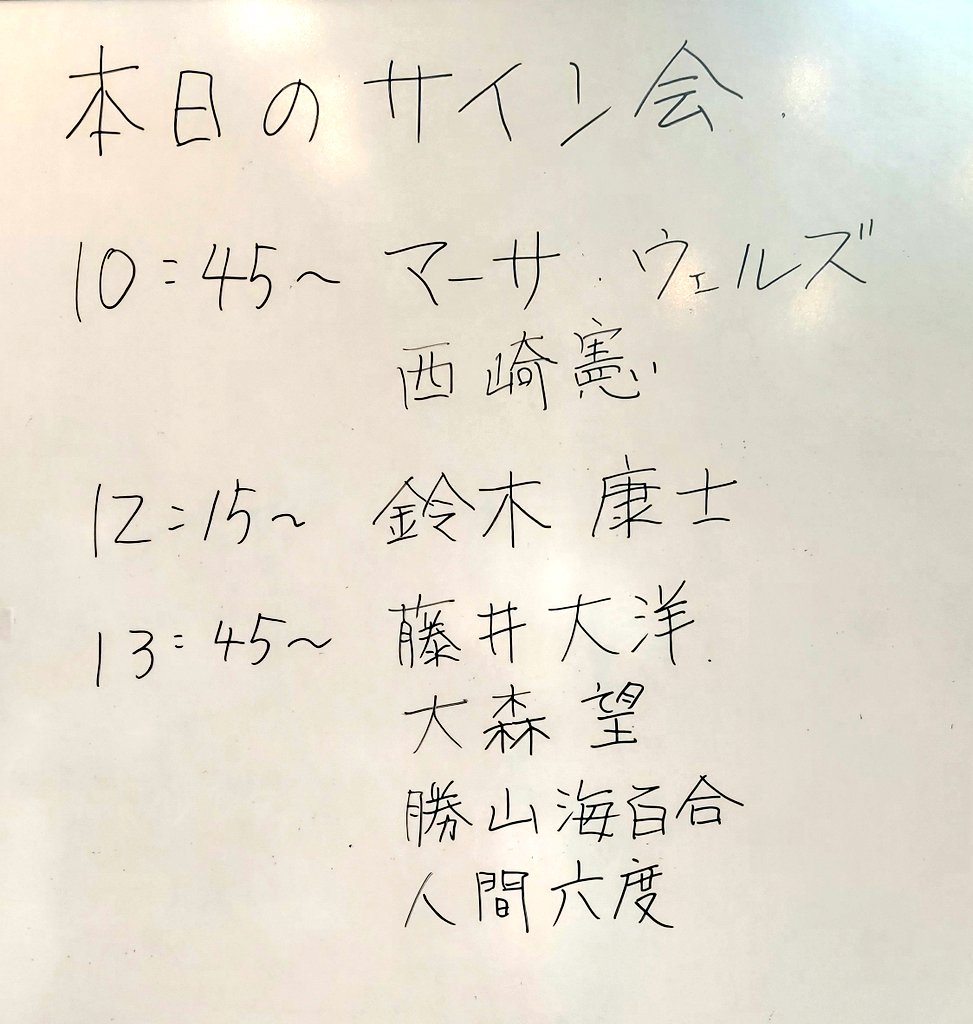 本日のサイン会
10:45～ マーサ・ウェルズ
西崎憲
12:15～ 鈴木康士
13:45～ 藤井大洋
大森望
勝山海百合
人間六度